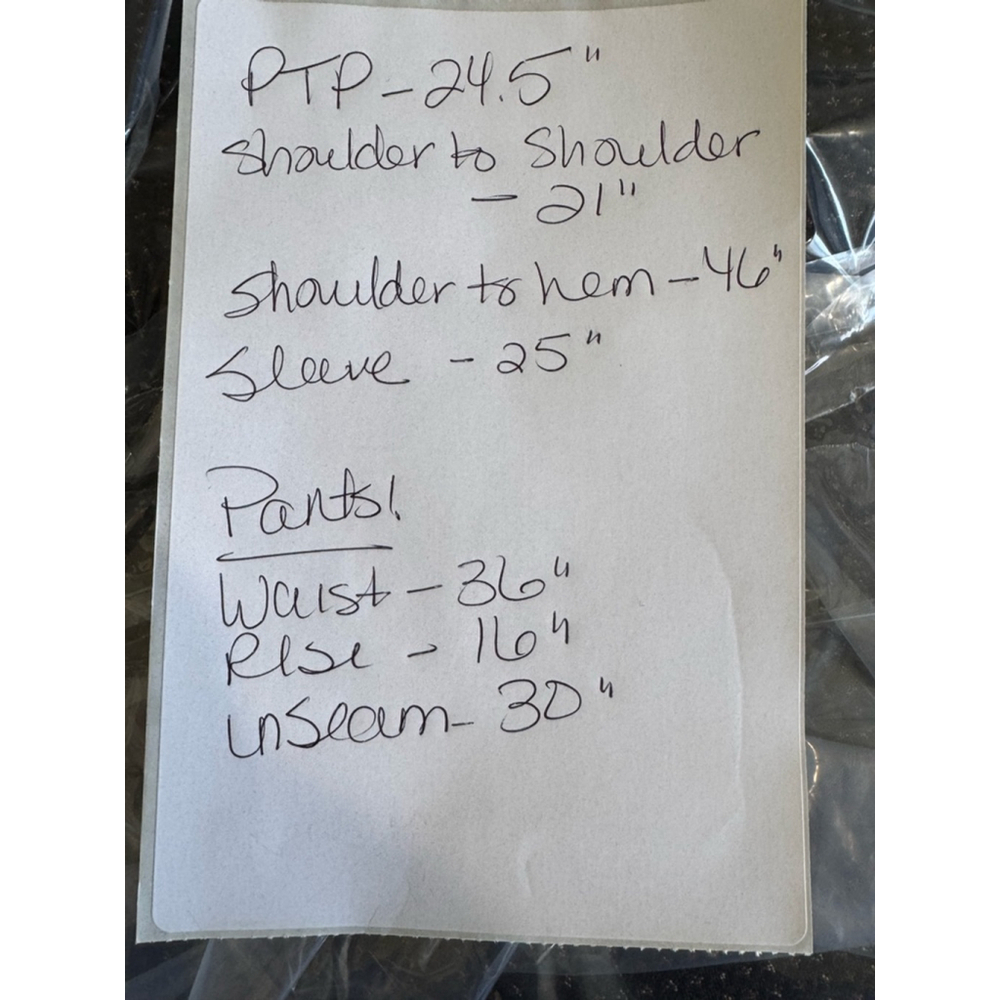 PTP - 24.5"
Shoulder to Shoulder
- 21"
Shoulder to hem - 46"
Sleeve - 25"
Pants!
Waist - 36"
Rise - 16"
inseam - 30"